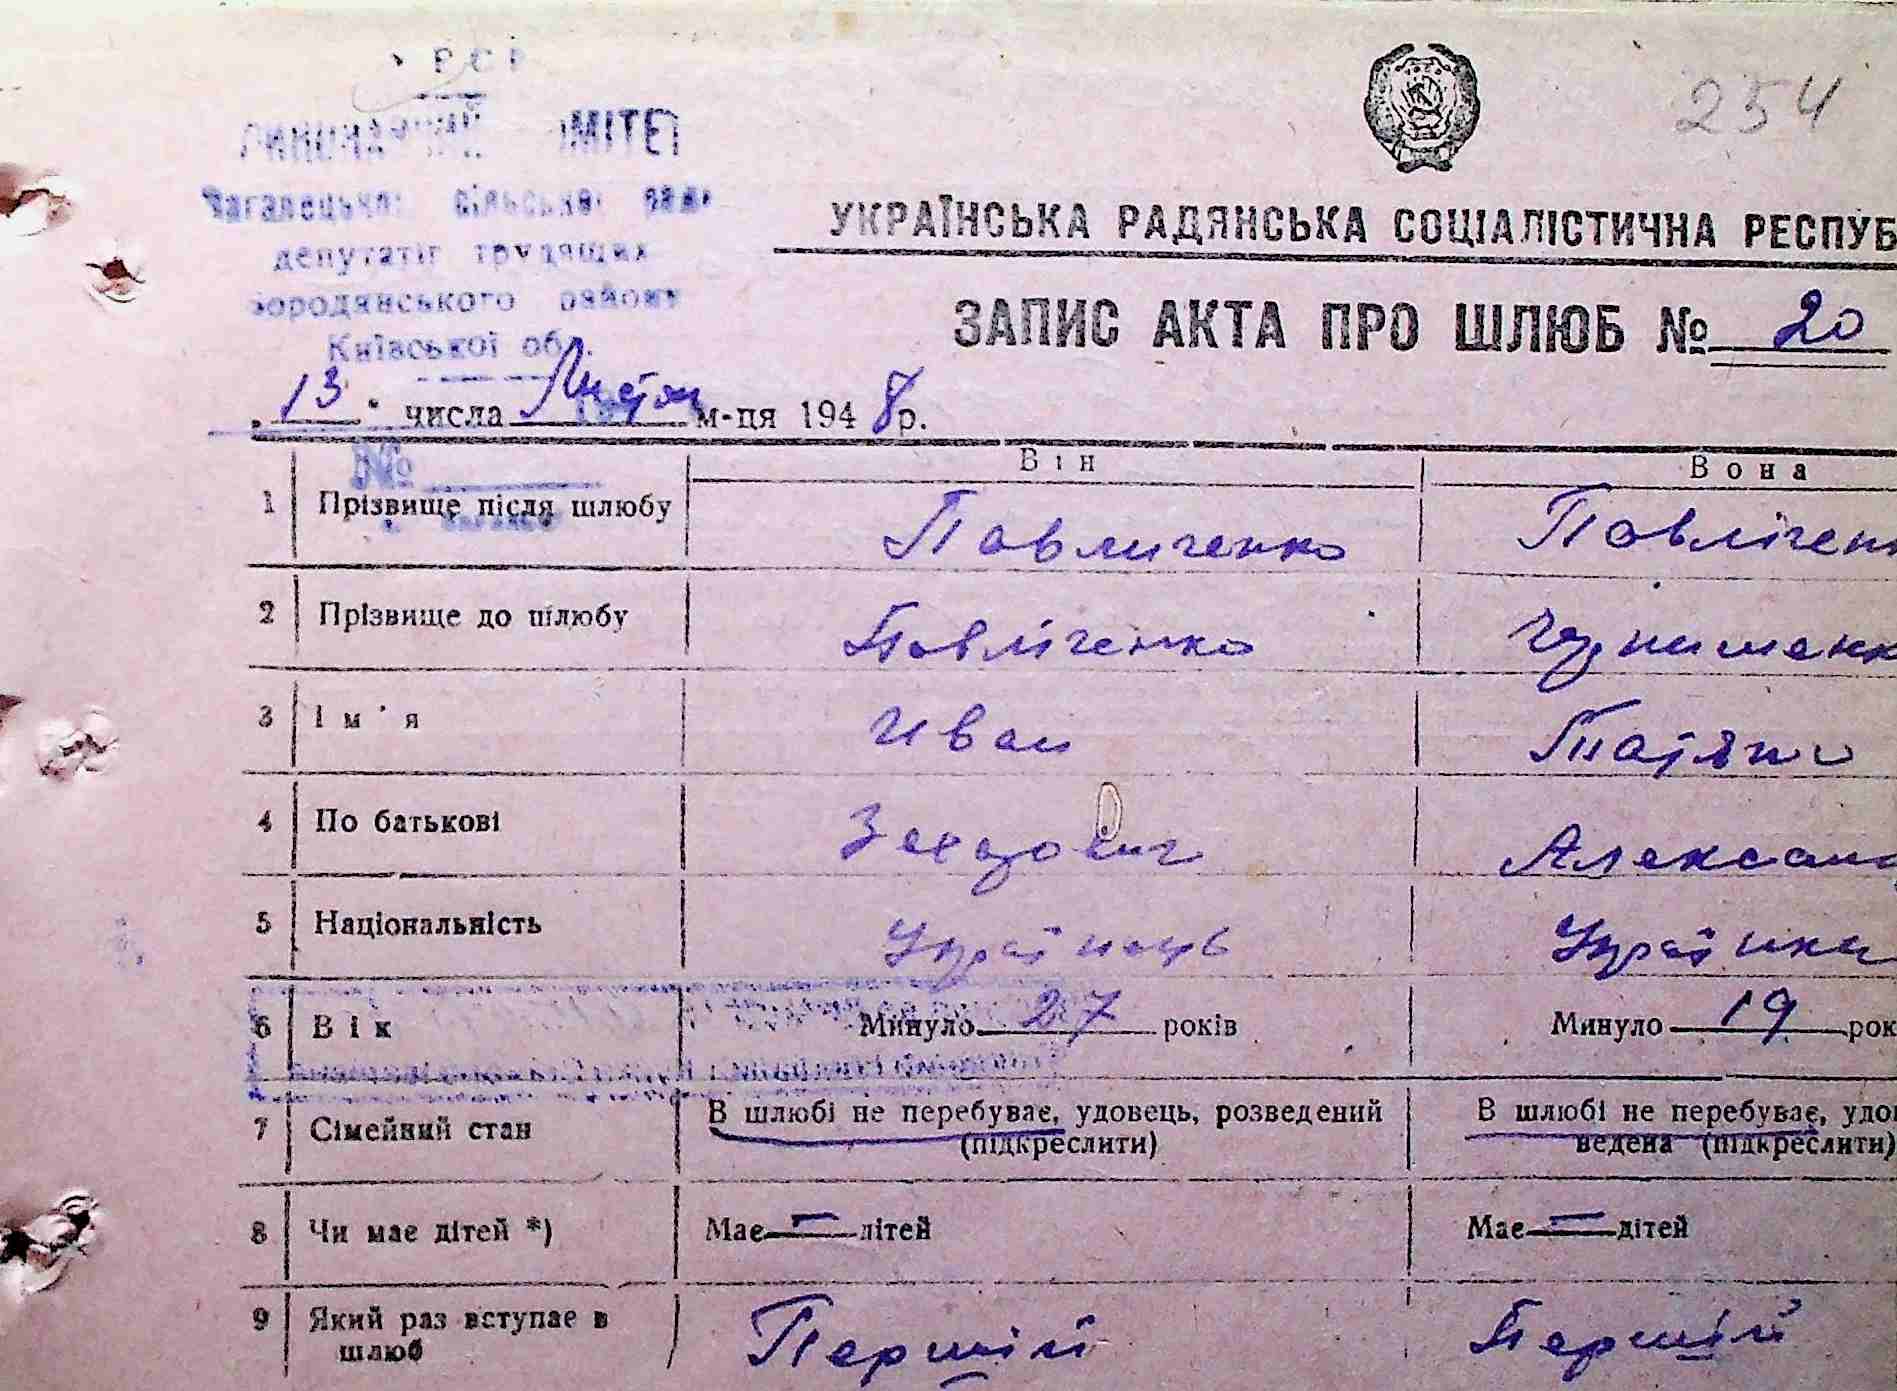 254
РСР
МІТЕТ
Загалецька сільська рада
депутатів трудящих
Бородянського району
Київської обл.
УКРАЇНСЬКА РАДЯНСЬКА СОЦІАЛІСТИЧНА РЕСПУБ
ЗАПИС АКТА ПРО ШЛЮБ № 20
13 числа Листоп м-ця 1948 р.
№
Він Вона
1 Прізвище після шлюбу Павличенко Павліченк
2 Прізвище до шлюбу Павліченко
3 Ім'я Иван Татяна
4 По батькові Александ
5 Національність Українець Українка
6 Вік Минуло 27 років Минуло 19 рок
7 Сімейний стан В шлюбі не перебуває, удовець, розведений В шлюбі не перебуває, удо
(підкреслити) ведена (підкреслити)
8 Чи має дітей *) Має — дітей Має — дітей
9 Який раз вступає в Першій Першій
шлюб